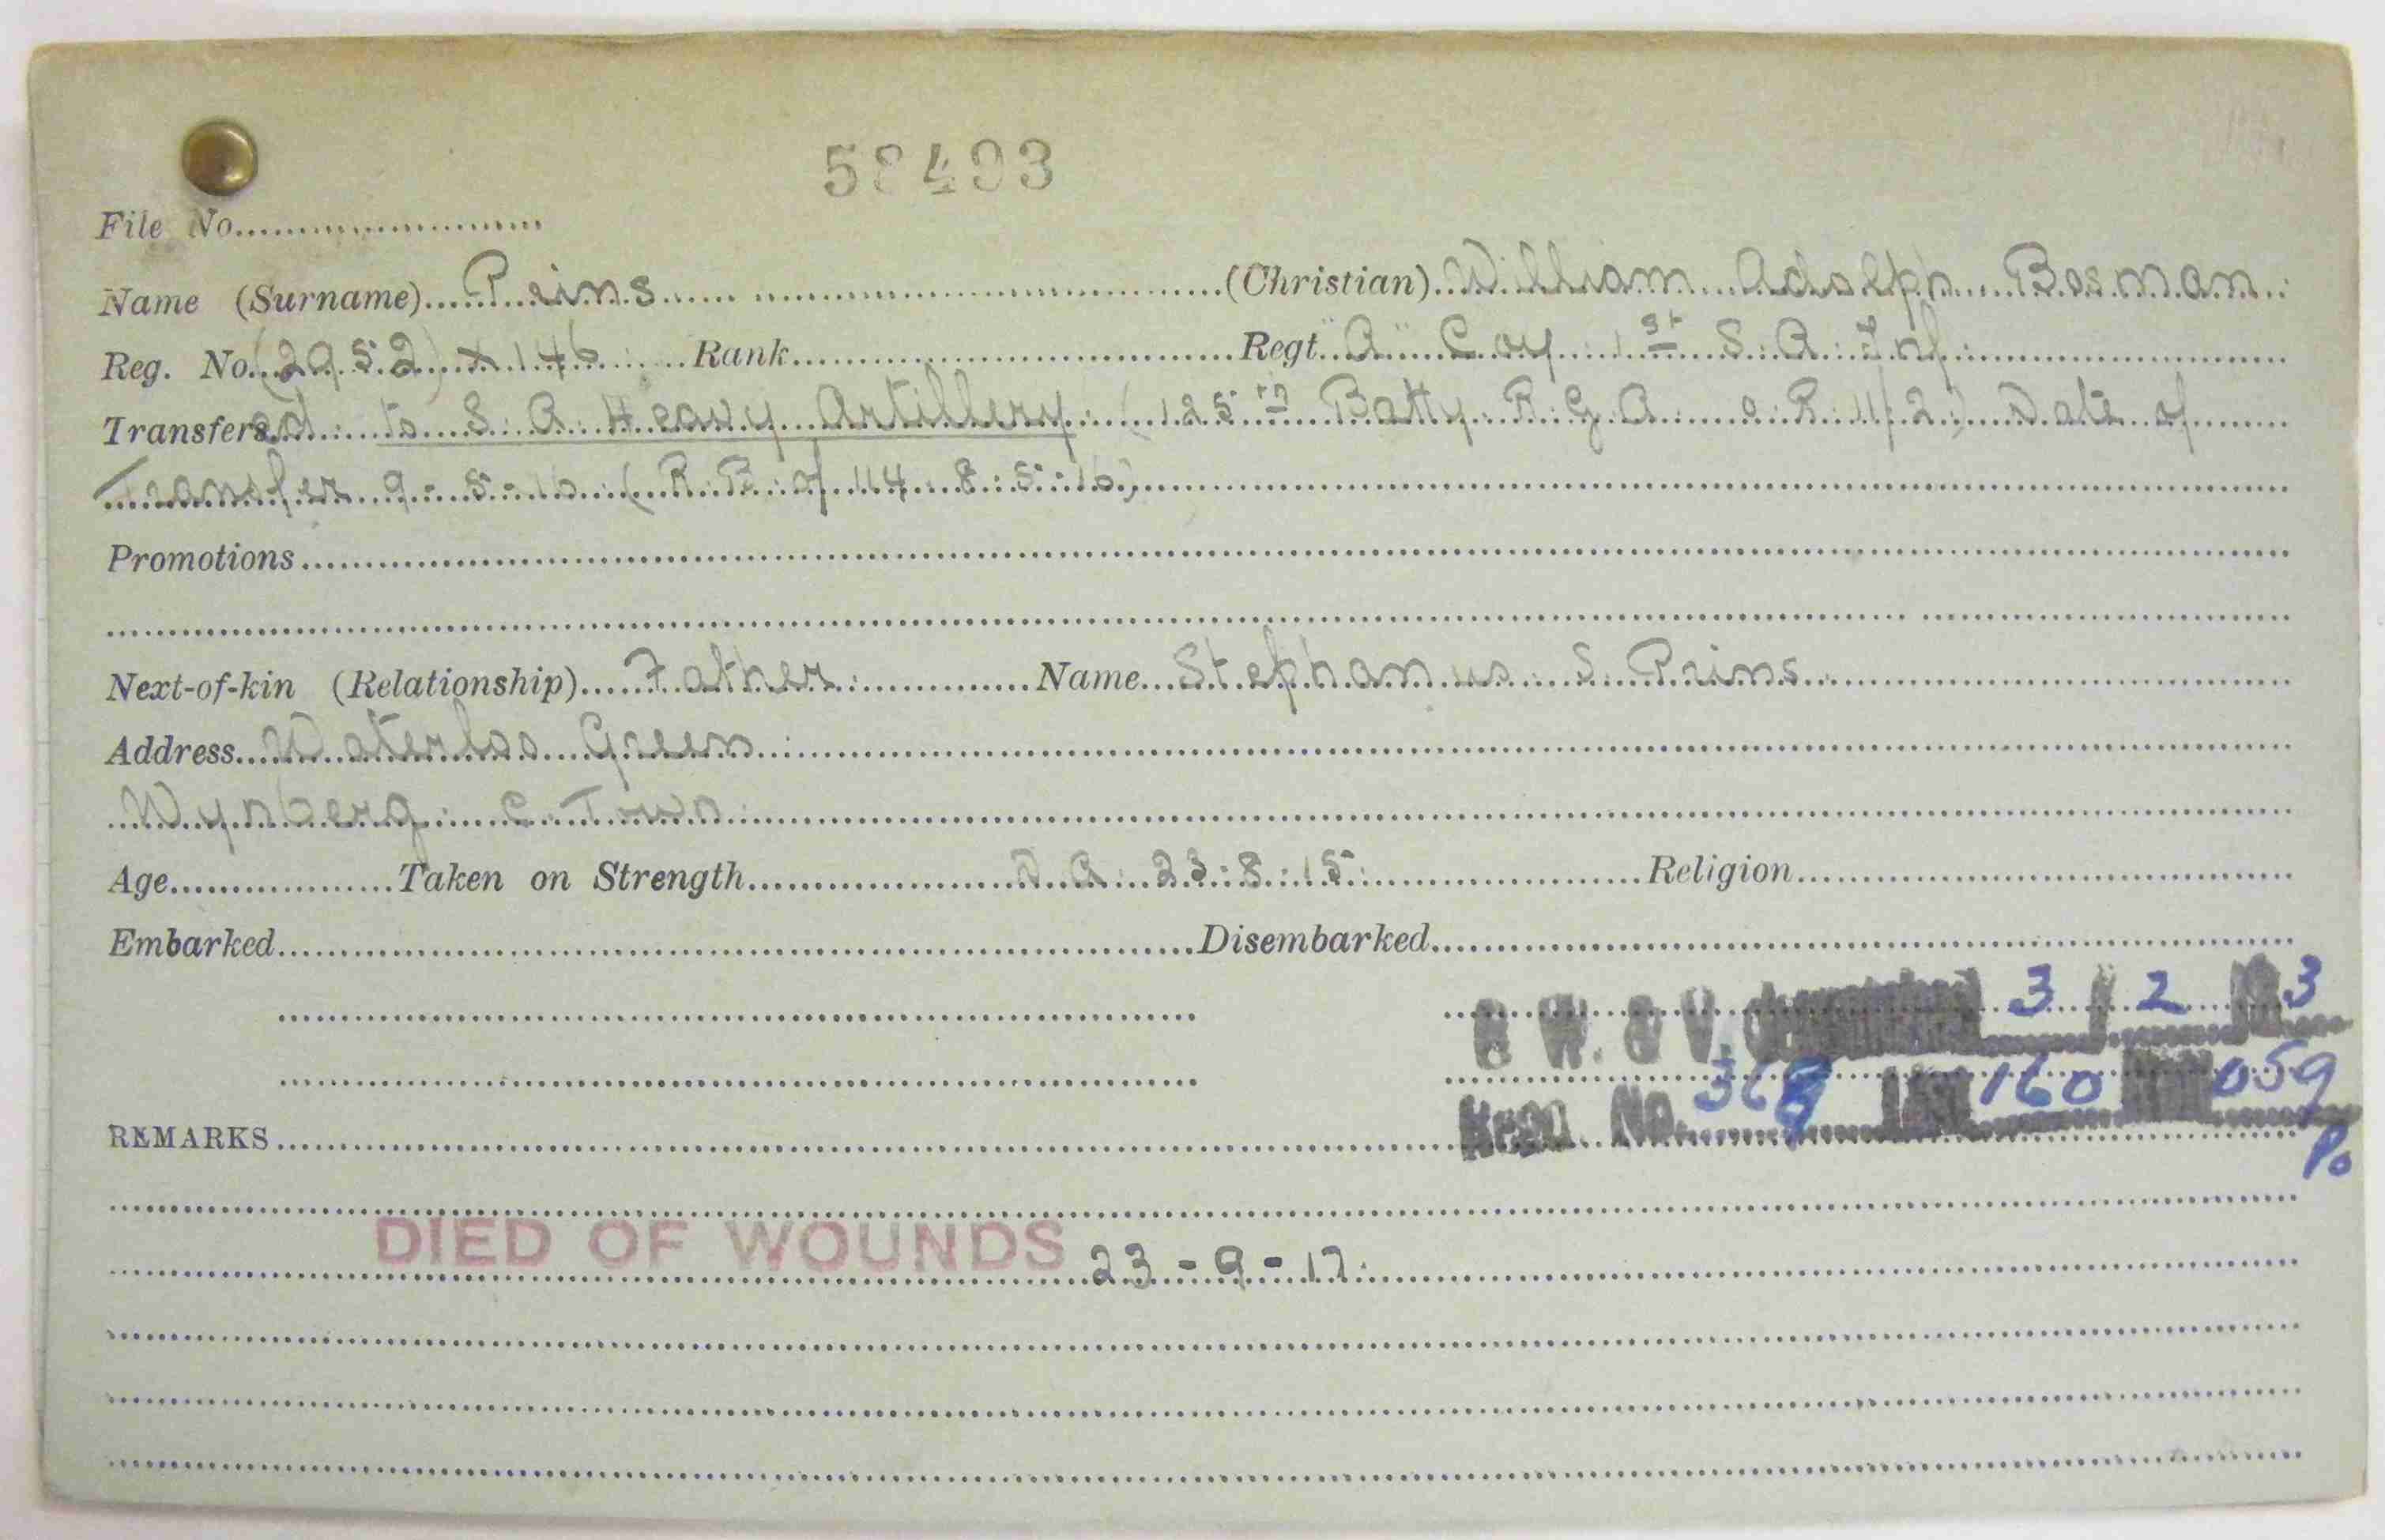 58493
File No.
Name (Surname) Prins (Christian) William Adolph Bosman
Reg. No. (2952) X 146 Rank Regt. "A" Coy 1st S. A. Inf.
Transfers ed to S. A. Heavy Artillery (125th Batty R. G. A. o. R. 11/2) Date of
Transfer 9-5-16 (R. P. of 114 8.5.16)
Promotions
Next-of-kin (Relationship) Father Name Stephanus S. Prins
Address Waterloo Green
Wynberg C. Town
Age Taken on Strength D. A. 23.8.15. Religion
Embarked Disembarked
B W. & V. despatched 3 / 2 3
Regd. No. 368 160 059
Po
REMARKS
DIED OF WOUNDS 23-9-17.